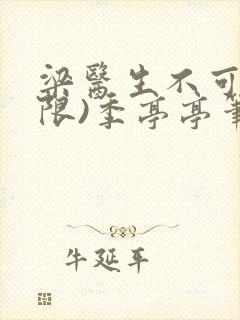 梁醫生不可
限)季亭亭筆
牛延平